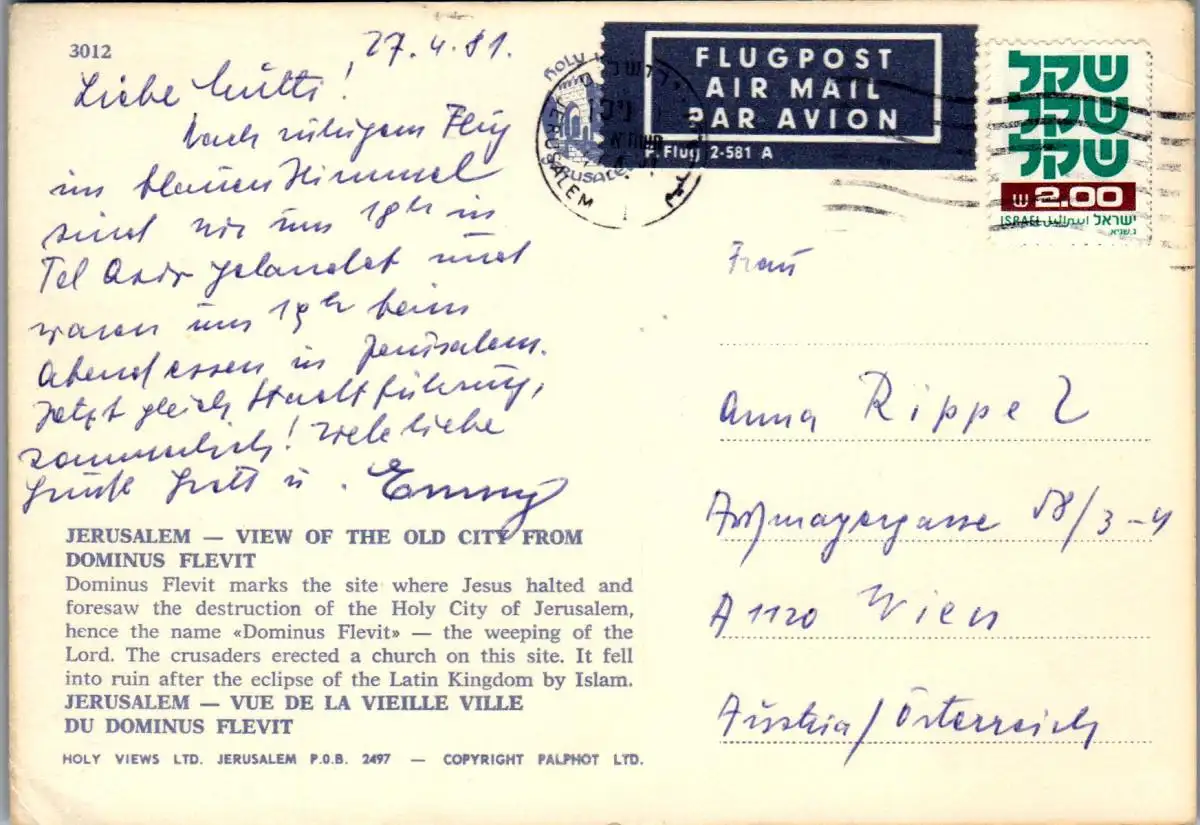 3012
27.4.81.
Liebe Mutti!
Nach ruhigem Flug
im blauen Himmel
sind wir um 18h in
Tel Aviv gelandet und
waren um 19h beim
Abendessen in Jerusalem.
Jetzt gleich Stadtführung,
sommerlich! Viele liebe
Grüße u. Emmy
FLUGPOST
AIR MAIL
PAR AVION
P. Flug 2-581 A
JERUSALEM
שקל
שקל
שקל
2.00
ISRAEL اسرائيل ישראל
Frau
Anna Rippel
A 1120 Wien
Austria/Österreich
JERUSALEM — VIEW OF THE OLD CITY FROM
DOMINUS FLEVIT
Dominus Flevit marks the site where Jesus halted and
foresaw the destruction of the Holy City of Jerusalem,
hence the name «Dominus Flevit» — the weeping of the
Lord. The crusaders erected a church on this site. It fell
into ruin after the eclipse of the Latin Kingdom by Islam.
JERUSALEM — VUE DE LA VIEILLE VILLE
DU DOMINUS FLEVIT
HOLY VIEWS LTD. JERUSALEM P.O.B. 2497 — COPYRIGHT PALPHOT LTD.